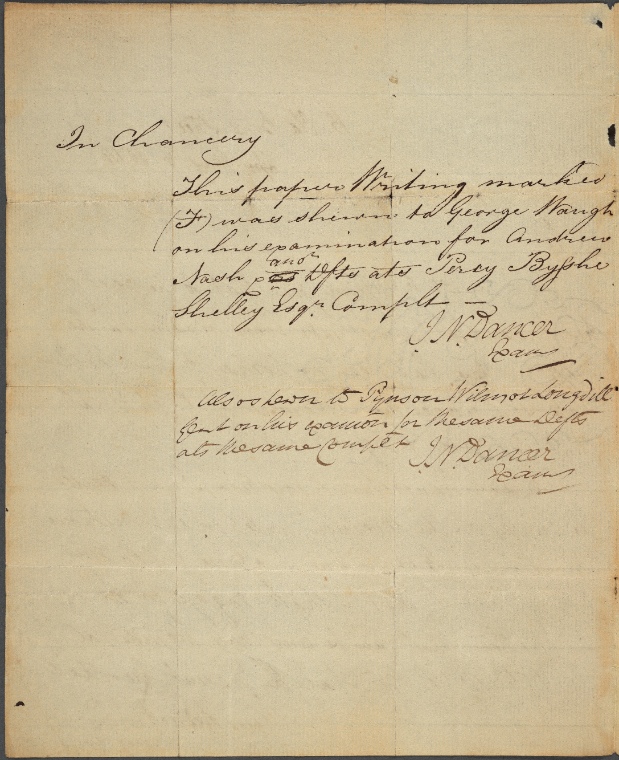 In Chancery
This paper Writing marked
(F) was shewn to George Waugh
on his examination for Andrew
anor
Nash Defts ats Percy Bysshe
Shelley Esqr. Complt —
J. N. Dancer
Exam
Also shewn to Pynson Wilmot Longdill
Gent on his examon for the same Defts
ats the same Complt
J. N. Dancer
Exam